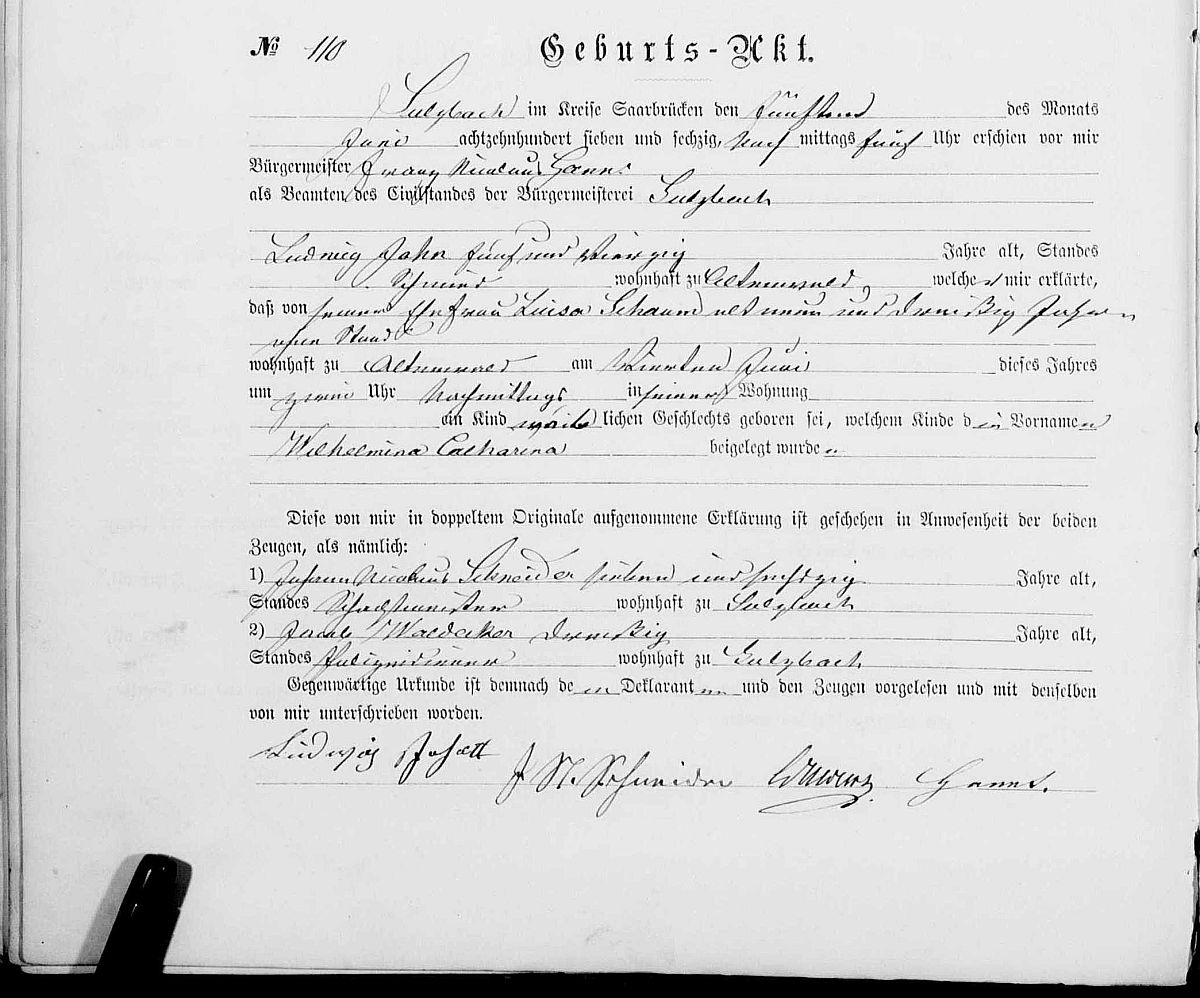 No 110 Geburts-Akt.
Sulzbach im Kreise Saarbrücken den fünften des Monats
Juni achtzehnhundert sieben und sechzig, Nach mittags fünf Uhr erschien vor mir
Bürgermeister Franz Nicolaus Hanns
als Beamten des Civilstandes der Bürgermeisterei Sulzbach
Ludwig John fünf und vierzig Jahre alt, Standes
Schmied wohnhaft zu Altenwald, welcher mir erklärte,
daß von seiner Ehefrau Luisa Schaum alt neun und dreißig Jahren
ohne Stand
wohnhaft zu Altenwald am Vierten Juni dieses Jahres
um zwei Uhr Nachmittags in seiner Wohnung
ein Kind weib lichen Geschlechts geboren sei, welchem Kinde die Vornamen
Wilhelmina Catharina beigelegt wurden.
Diese von mir in doppeltem Originale aufgenommene Erklärung ist geschehen in Anwesenheit der beiden
Zeugen, als nämlich:
1) Johann Nicolaus Schneider sieben und sechszig Jahre alt,
Standes Schachtmeister wohnhaft zu Sulzbach
2) Jacob Waldecker dreißig Jahre alt,
Standes Polizeidiener wohnhaft zu Sulzbach
Gegenwärtige Urkunde ist demnach dem Deklaranten und den Zeugen vorgelesen und mit denselben
von mir unterschrieben worden.
Ludwig
J N Schneider Hanns.